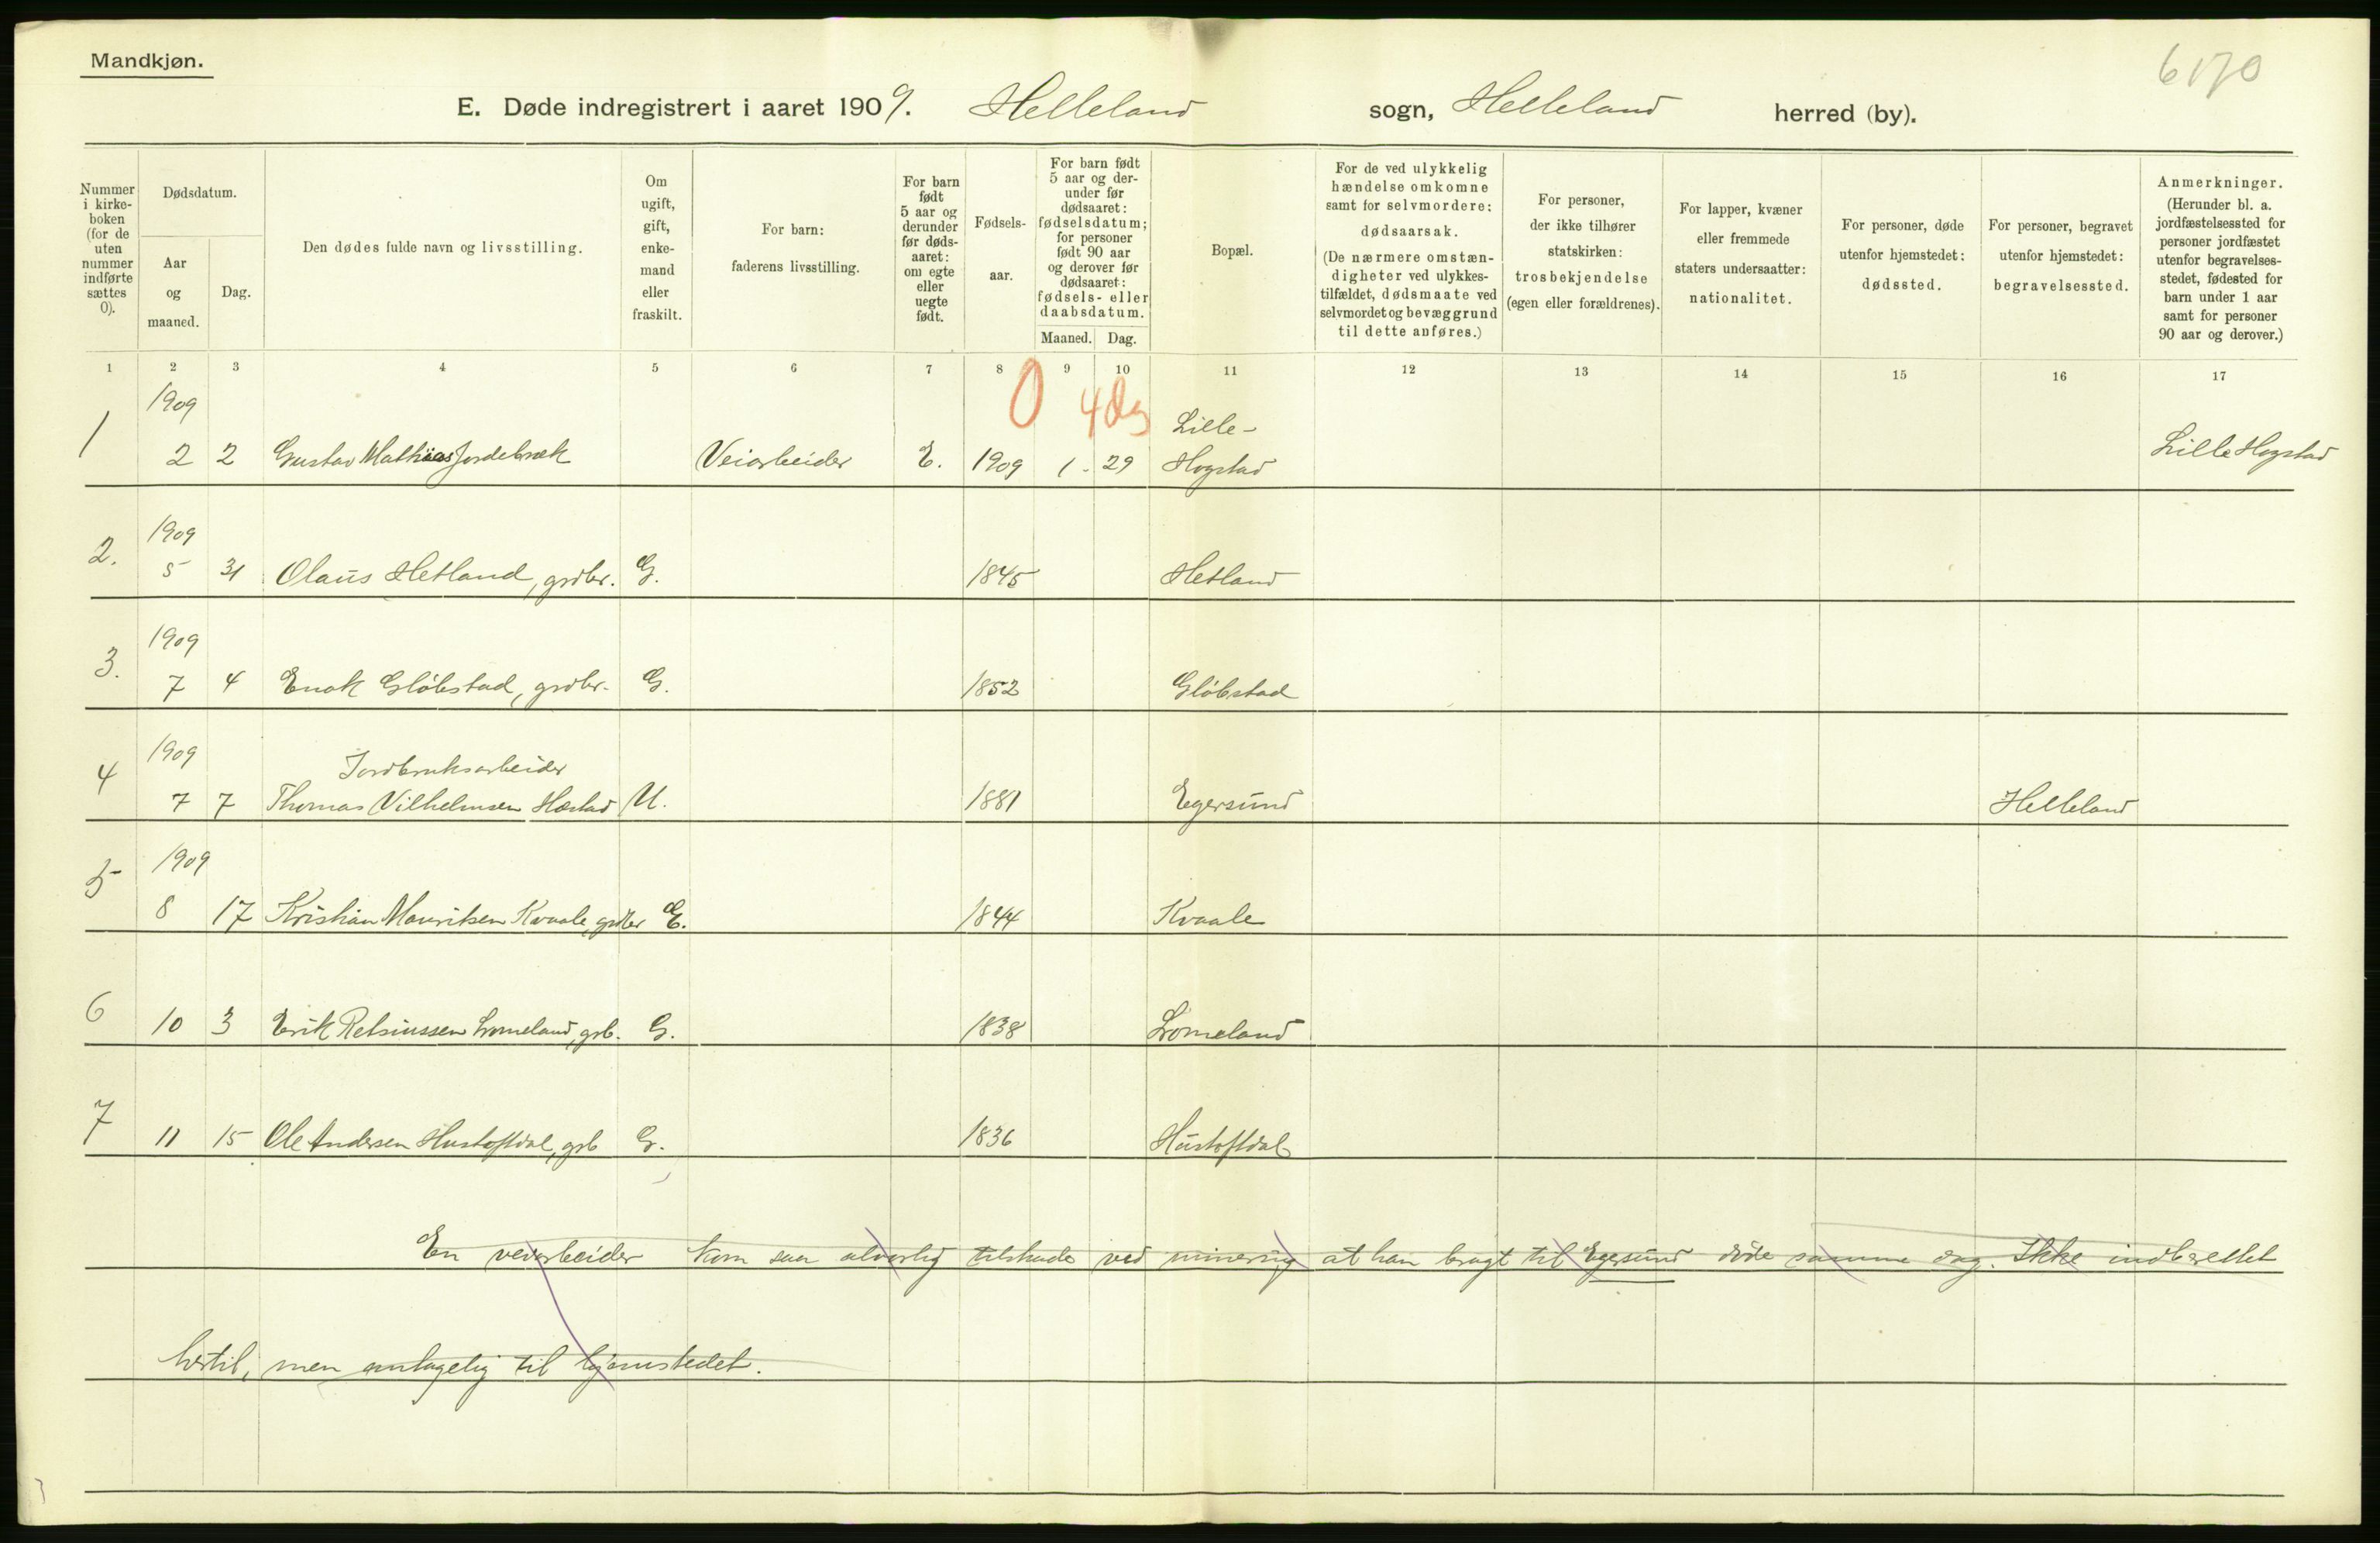 Mandkjøn.
6170
E. Døde indregistrert i aaret 1909. Helleland sogn, Helleland herred (by).
Nummer i kirke-boken (for de uten nummer indførte sættes 0).
Dødsdatum.
Aar og maaned.
Dag.
Den dødes fulde navn og livsstilling.
Om ugift, gift, enke-mand eller fraskilt.
For barn: faderens livsstilling.
For barn født 5 aar og derunder før døds-aaret: om egte eller uegte født.
Fødsels-aar.
For barn født 5 aar og der-under før dødsaaret: fødselsdatum; for personer født 90 aar og derover før dødsaaret: fødsels- eller daabsdatum.
Maaned. Dag.
Bopæl.
For de ved ulykkelig hændelse omkomne samt for selvmordere: dødsaarsak. (De nærmere omstæn-digheter ved ulykkes-tilfældet, dødsmaate ved selvmordet og bevæggrund til dette anføres.)
For personer, der ikke tilhører statskirken: trosbekjendelse (egen eller forældrenes).
For lapper, kvæner eller fremmede staters undersaatter: nationalitet.
For personer, døde utenfor hjemstedet: dødssted.
For personer, begravet utenfor hjemstedet: begravelsessted.
Anmerkninger. (Herunder bl. a. jordfæstelsessted for personer jordfæstet utenfor begravelses-stedet, fødested for barn under 1 aar samt for personer 90 aar og derover.)
1 2 3 4 5 6 7 8 9 10 11 12 13 14 15 16 17
1909 0 4 dg Lille-
1 2 2 Gustav Mathias Jordebræk Veiarbeider E. 1909 1. 29 Hogstad Lille Hogstad
1909
2. 5 31 Olaus Hetland, grdbr. G. 1845 Hetland
1909
3. 7 4 Enok Gløbstad, grdbr. G. 1852 Gløbstad
1909 Jordbruksarbeider
4 7 7 Thomas Vilhelmsen Hæstad U. 1881 Egersund Helleland
1909
5 8 17 Kristian Mauritsen Kvaale, grdbr E. 1844 Kvaale
6 10 3 Erik Retsiussen Lomeland, grb. G. 1838 Lomeland
7 11 15 Ole Andersen Hustoftdal, grb G. 1836 Hustoftdal
En veiarbeider kom saa alvorlig tilskade ved minering at han bragt til Egersund døde samme dag. Ikke indberettet
hertil, men antagelig til hjemstedet.